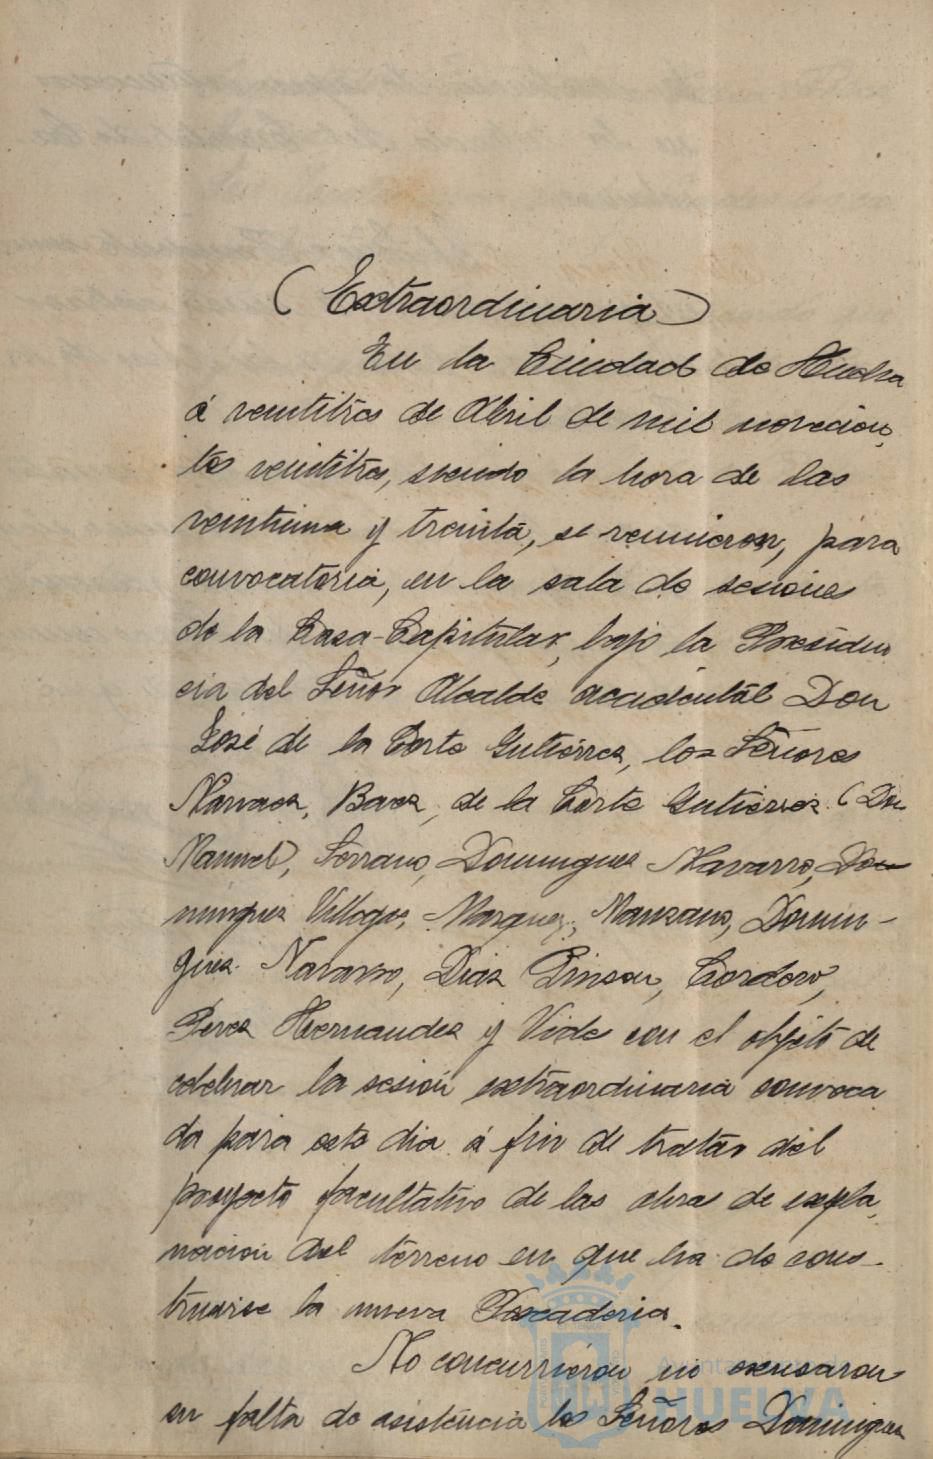 (Extraordinaria)
En la Ciudad de Huelva
á veintitres de Abril de mil novecien
tos veintitres, siendo la hora de las
veintiuna y treinta, se reunieron, para
convocatoria, en la sala de sesiones
de la Casa-Capitular, bajo la Presiden
cia del Señor Alcalde accidental Don
José de la Corte Gutiérrez, los Señores
Narvaez, Baez, de la Corte Gutierrez (Don
Manuel), Serrano, Dominguez Navarro, Do
minguez Villegas, Marquez, Manzano, Domin-
guez Navarro, Diaz Pinzon, Cordero,
Perez Hernandez y Vides con el objeto de
celebrar la sesión extraordinaria convoca
da para este dia á fin de tratar del
proyecto facultativo de las obras de expla
nacion del terreno en que ha de cons-
truirse la nueva Pescaderia.
No concurrieron ni excusaron
su falta de asistencia los Señores Dominguez
Ayuntamiento de
HUELVA